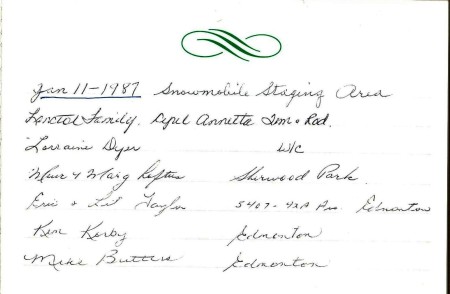 Jan 11-1987 Snowmobile Staging Area
Family. Annetta Tom & Rod.
Lorraine Dyer W/C
& Marg Loftus Sherwood Park.
Eric & Lil Taylor 5407-42A Ave. Edmonton
Ken Kerby Edmonton
Mike Butters Edmonton